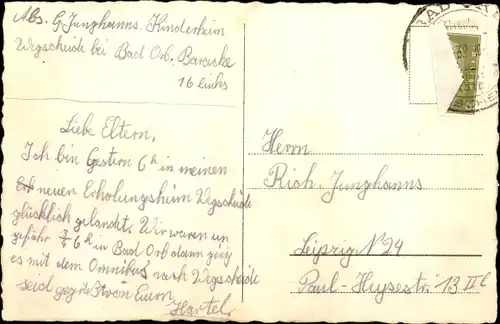 Abs. G. Junghanns. Kinderheim
Wegscheide bei Bad Orb. Baracke
16 links
Liebe Eltern.
Ich bin Gestern 6 h in meinen
neuen Erholungsheim Wegscheide
glücklich gelandet. Wir waren un
gefähr 6 h in Bad Orb dann ging
es mit dem Omnibus nach Wegscheide
seid gegrüßt von Eurn
Hartel.
Herrn
Rich. Junghanns
Leipzig N 24
Paul-Heysestr. 13 II
BAD